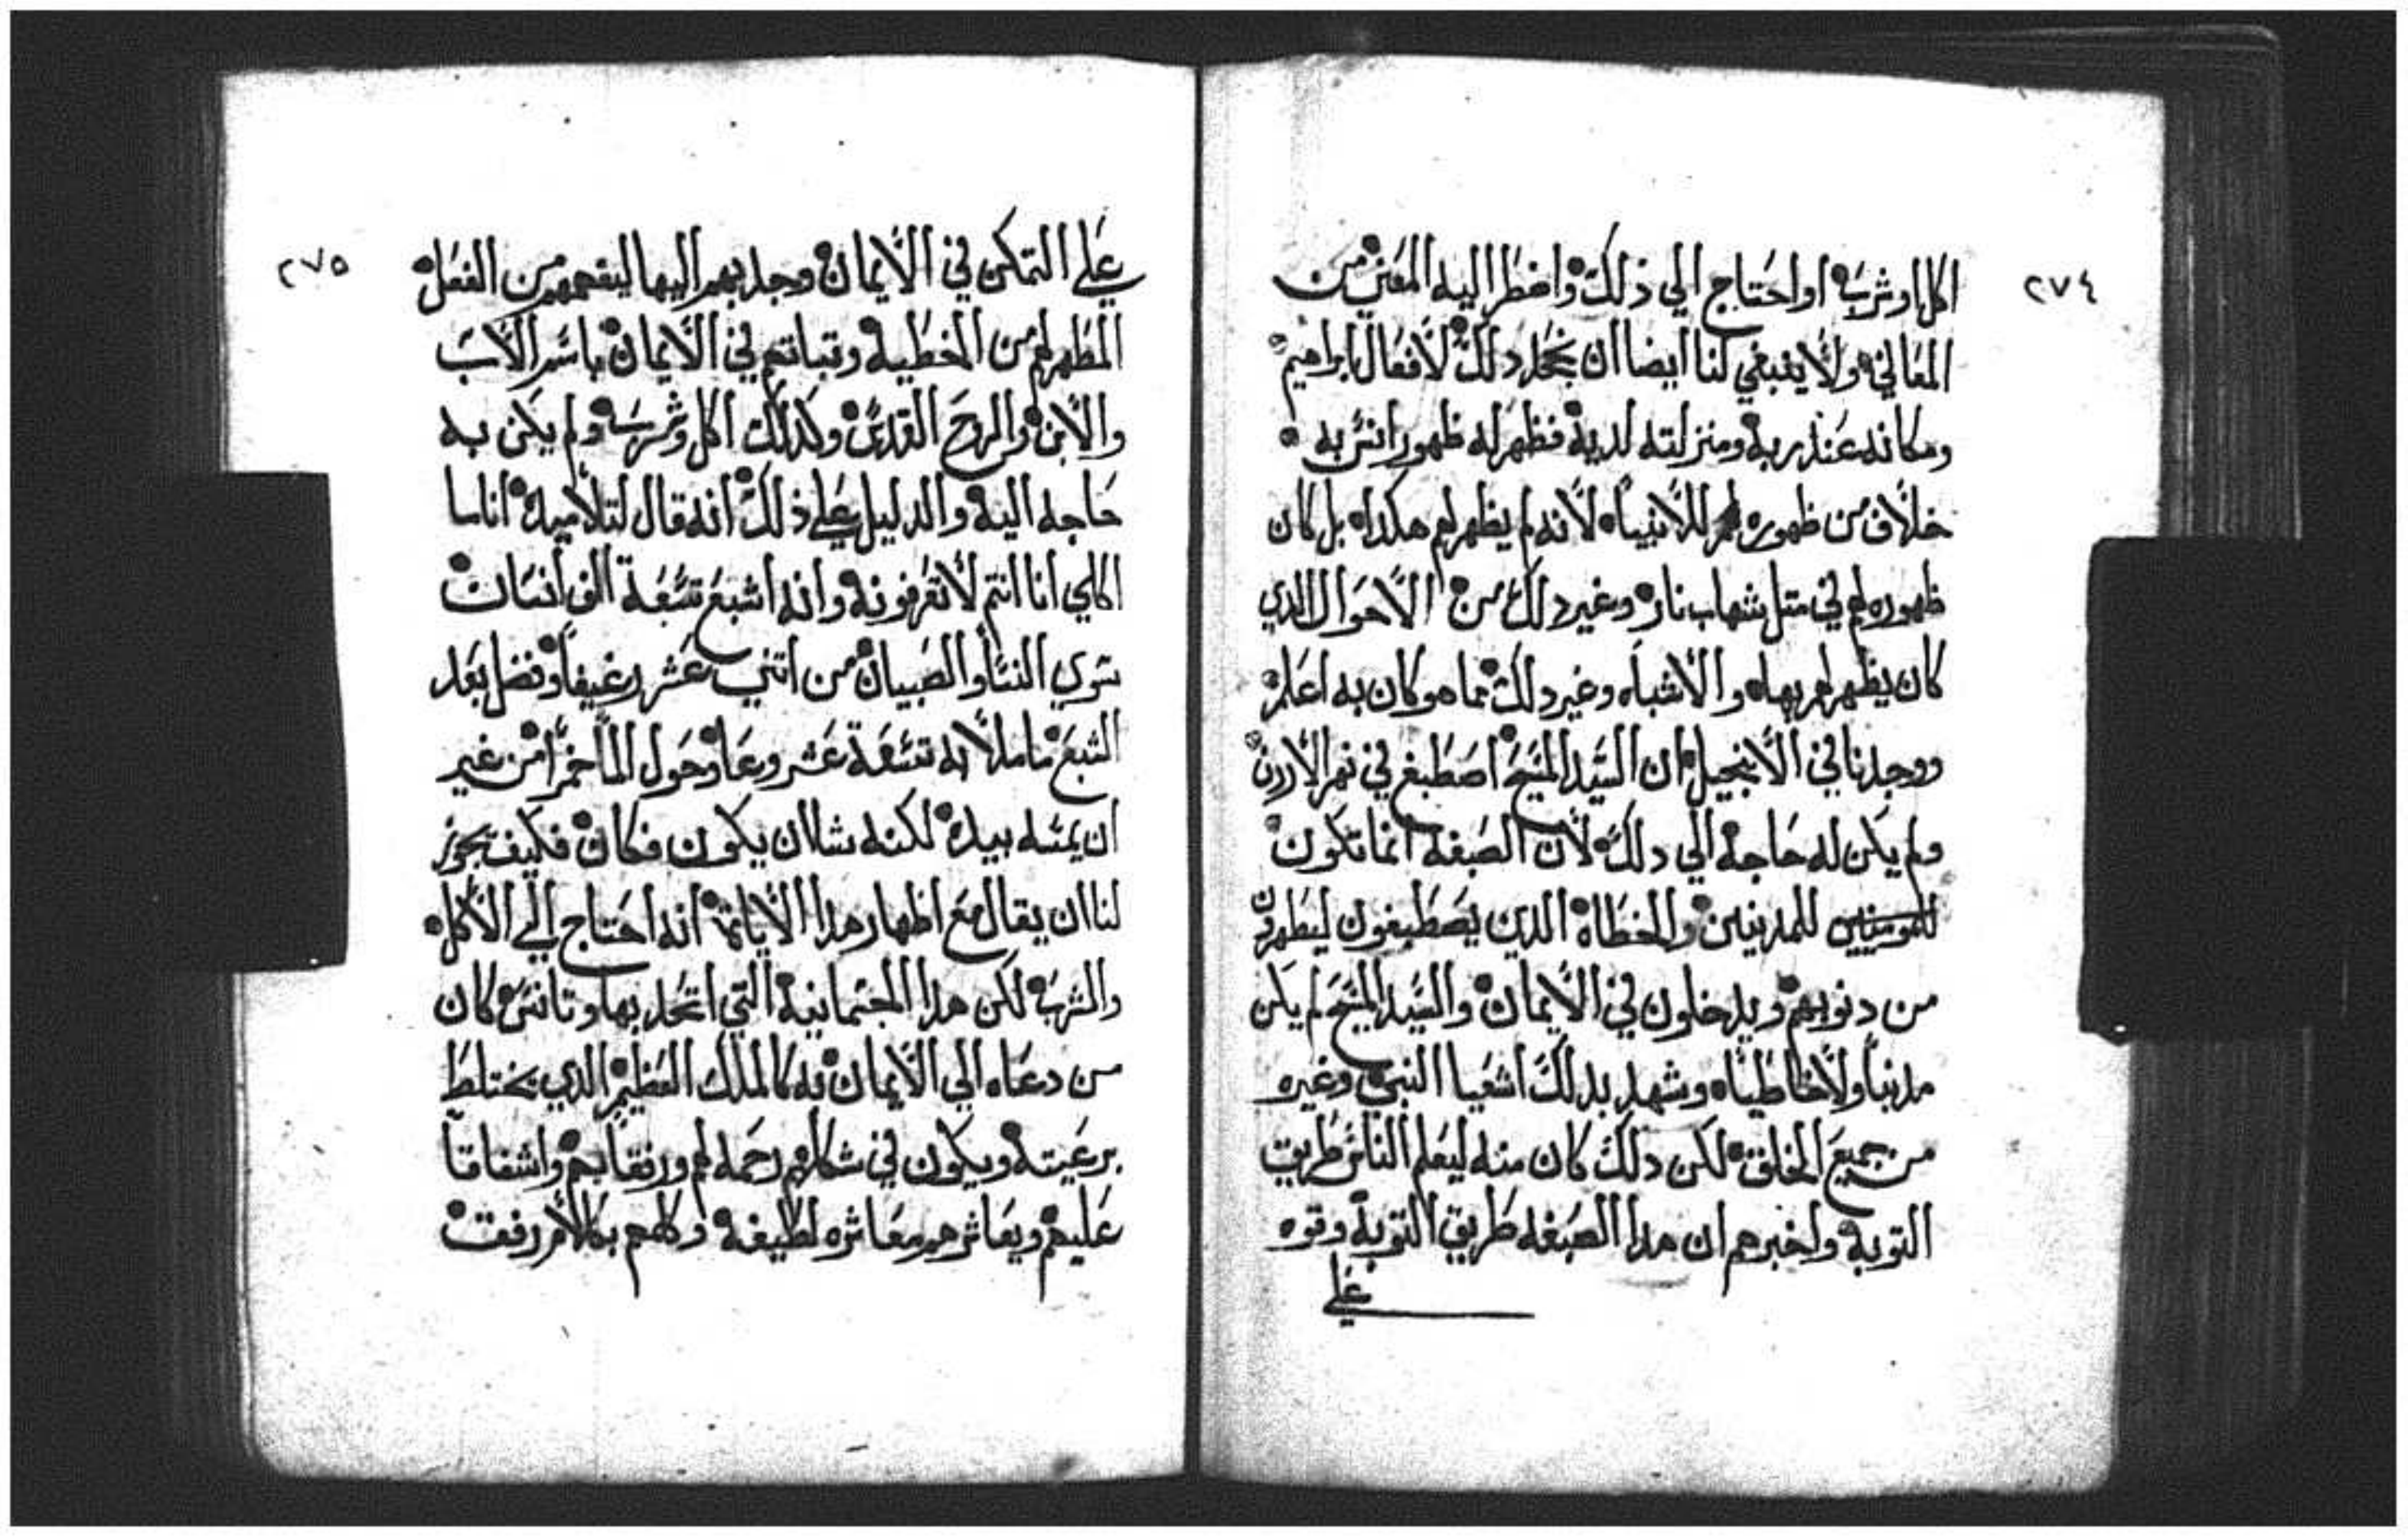 ٢٧٤
اكل او شرب او احتاج الي ذلك واضطر اليه لمعني من
المعاني ولا ينبغي لنا ايضا ان نجعل دلك لافعال ابراهيم
ومكانه عند ربه ومنزلته لديه فظهر له ظهور انس به
خلاف من ظهوره للانبياه لانه لم يظهر لهم هكدا بل كان
ظهوره لهم في متل شهاب نار وغير دلك من الاحوال الدي
كان يظهر لهم بها والاشباه وغير دلك مما هو كان به اعلم
ووجدنا في الانجيل ان السيد المسيح اصطبغ في نهر الاردن
ولم يكن له حاجة الي دلك لان الصبغه انما تكون
للمومنيين للمدنبين والخطاه الدين يصطبغون ليطهرون
من دنوبهم ويدخلون في الايمان والسيد المسيح لم يكن
مدنباً ولا خاطياً وشهد بدلك اشعيا النبي وغيره
من جميع الخلق لكن دلك كان منه ليعلم الناس طريق
التوبة واخبرهم ان هدا الصبغه طريق التوبة وقوه
علي
٢٧٥
علي التمكن في الايمان وجدبهم اليها لينفعهم من الفعل
المطهر لهم من الخطية وتباتهم في الايمان باسم الاب
والابن والروح القدس وكدلك اكل وشرب ولم يكن به
حاجه اليه والدليل علي ذلك انه قال لتلاميده اناسا
اكلي انا انتم لا تعرفونه وانه اشبع تسعة الف انسان
سوي النسا والصبيان من اتني عشر رغيفاً وفضل بعد
الشبع ما ملا به تسعة عشر وعا وحول الما خمراً من غير
ان يمسه بيده لكنه شا ان يكون فكان فكيف يجوز
لنا ان يقال مع اظهار هدا الايات انه احتاج الي الاكل
والشرب لكن هدا الجسمانية التي اتحد بها وتانس كان
من دعاه الي الايمان به كالملك العظيم الدي يختلط
برعيته ويكون في شكلهم رحمه لهم ورفقاً بهم واشفاقاً
عليهم ويعاشرهم معاشره لطيفة وكلمهم بكلام رفق